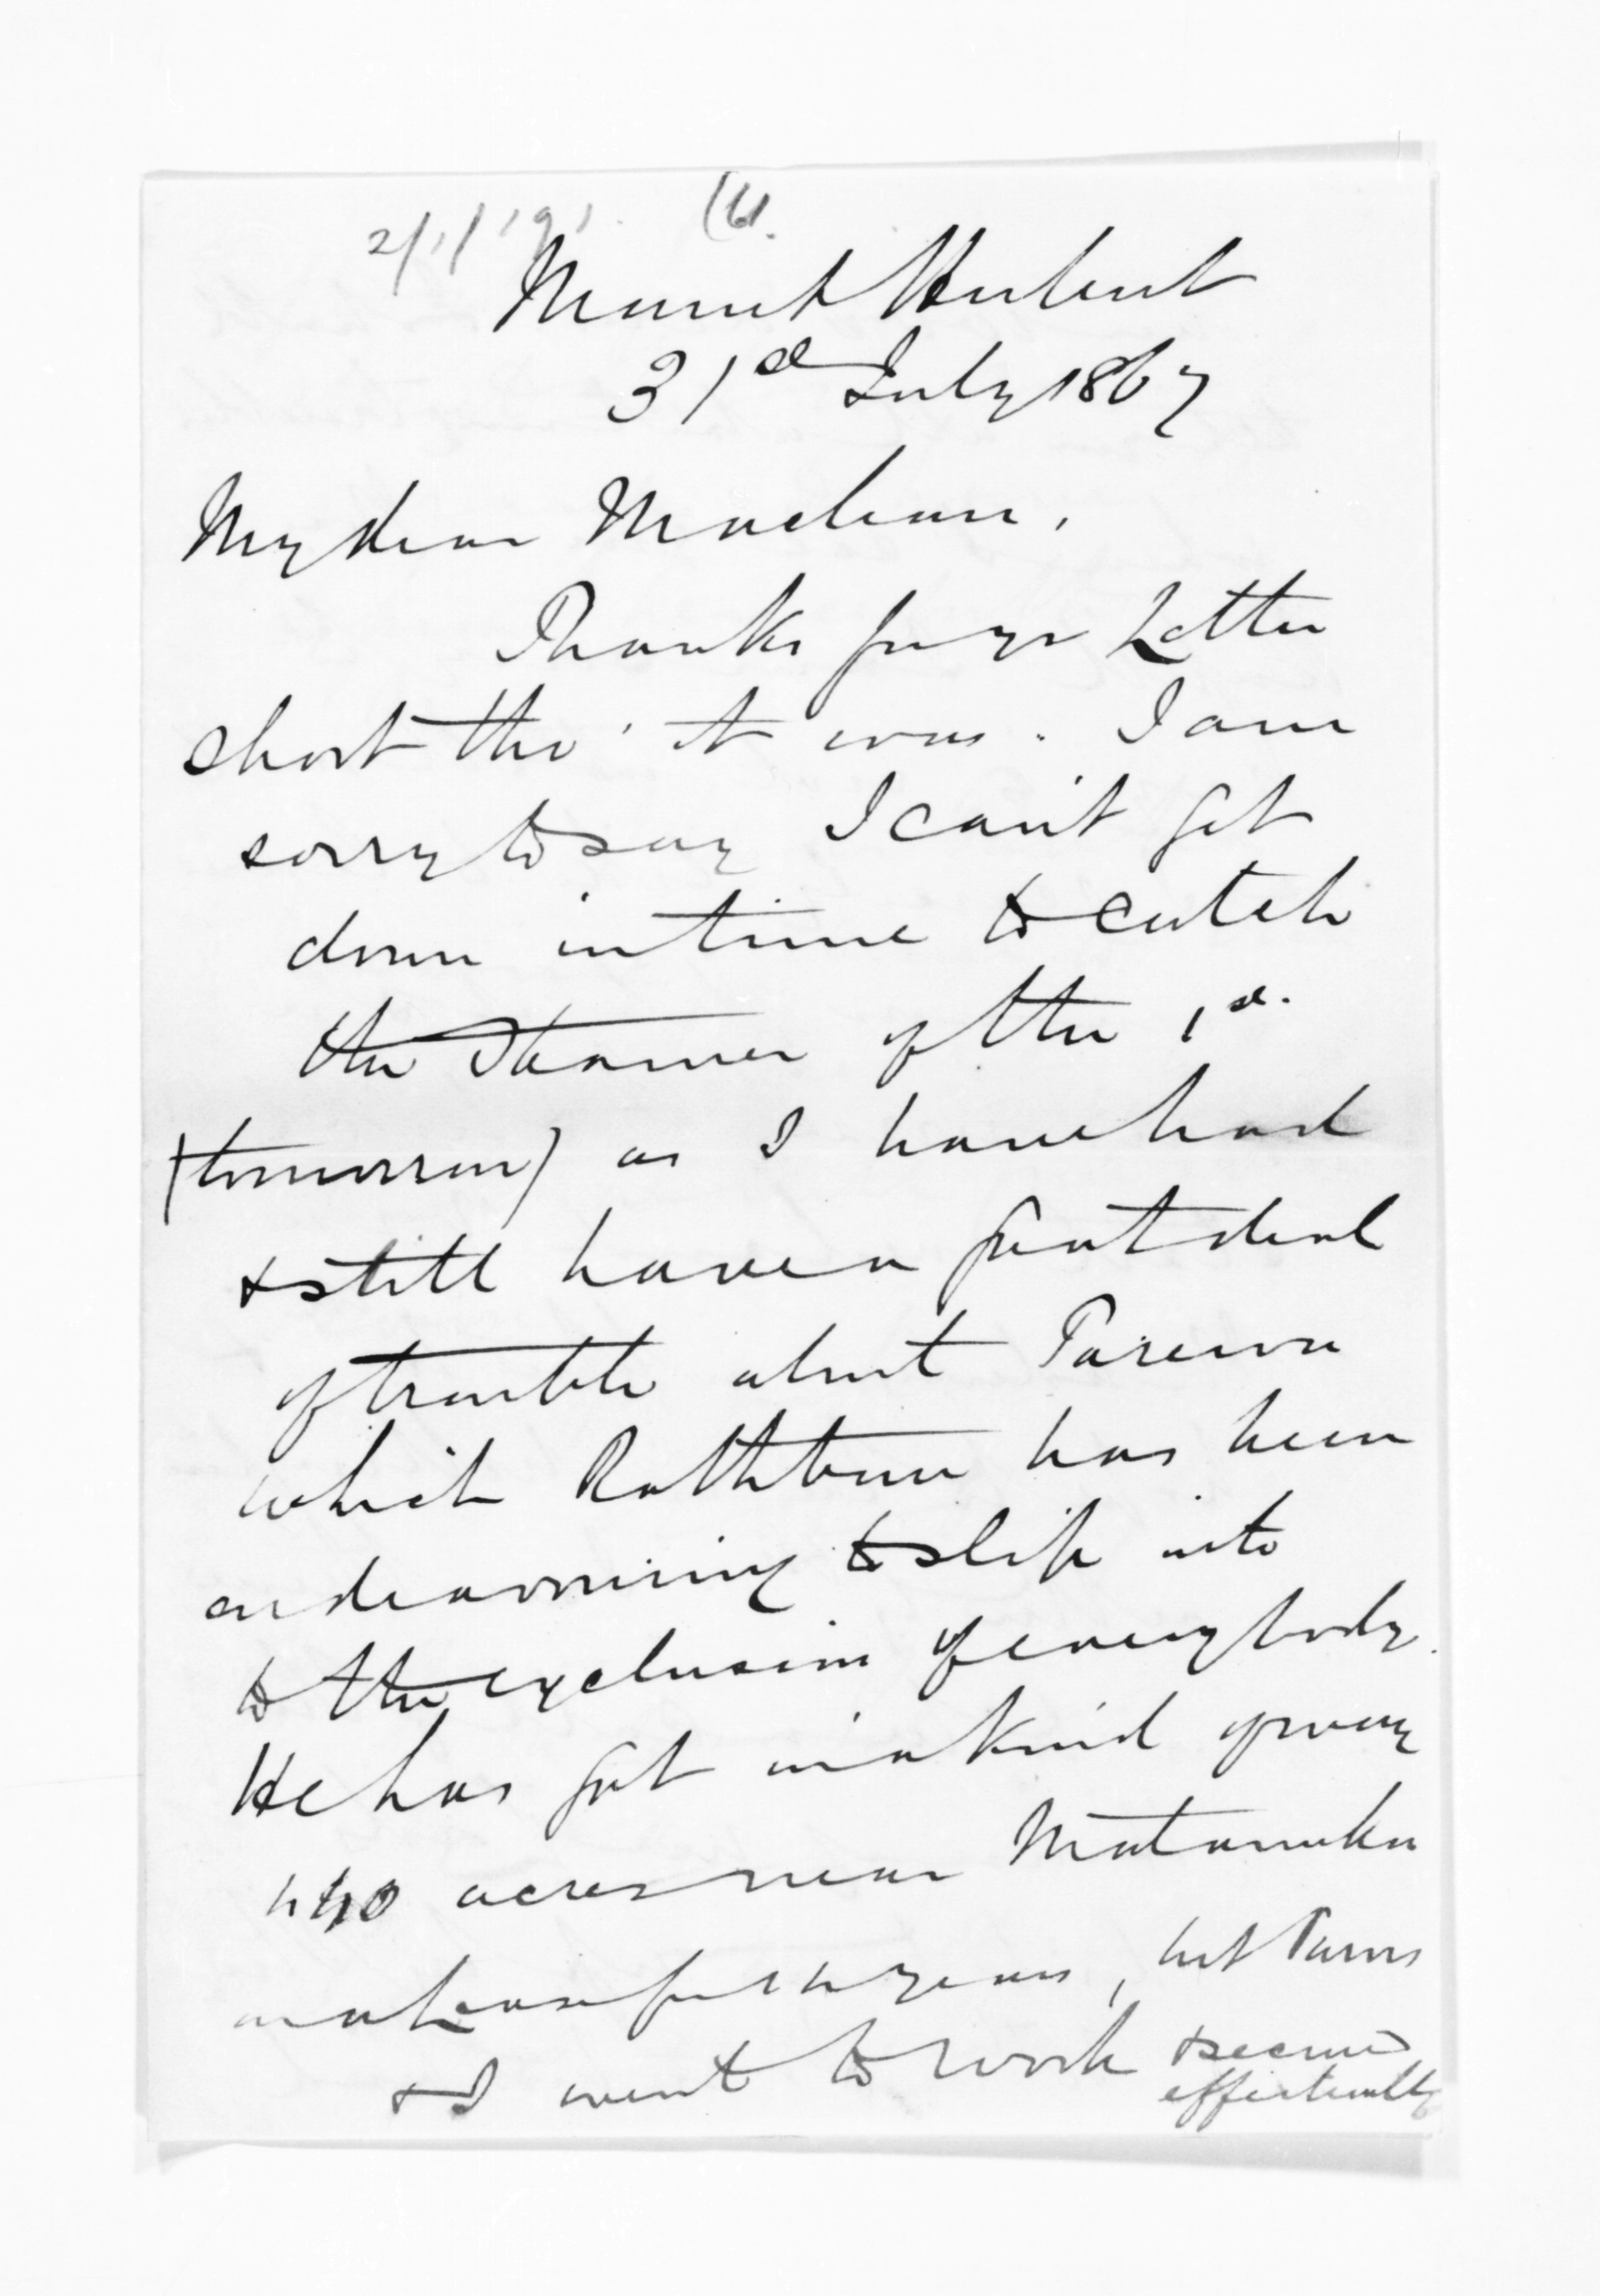 Mount Herbert
31st July 1867
My dear Maclean,
Thanks for yr Letter
short tho' it was. I am
sorry to say I can't get
down in time to catch
the Steamer of the 1st.
(tomorrow) as I have had
& still have a great deal
of trouble about Parewa
which Rathbone has been
endeavouring to slip into
to the exclusion of everybody.
He has got in a kind of way
440 acres near Mataruka
on a Lease for years, but
& I went to work & secured
effectually